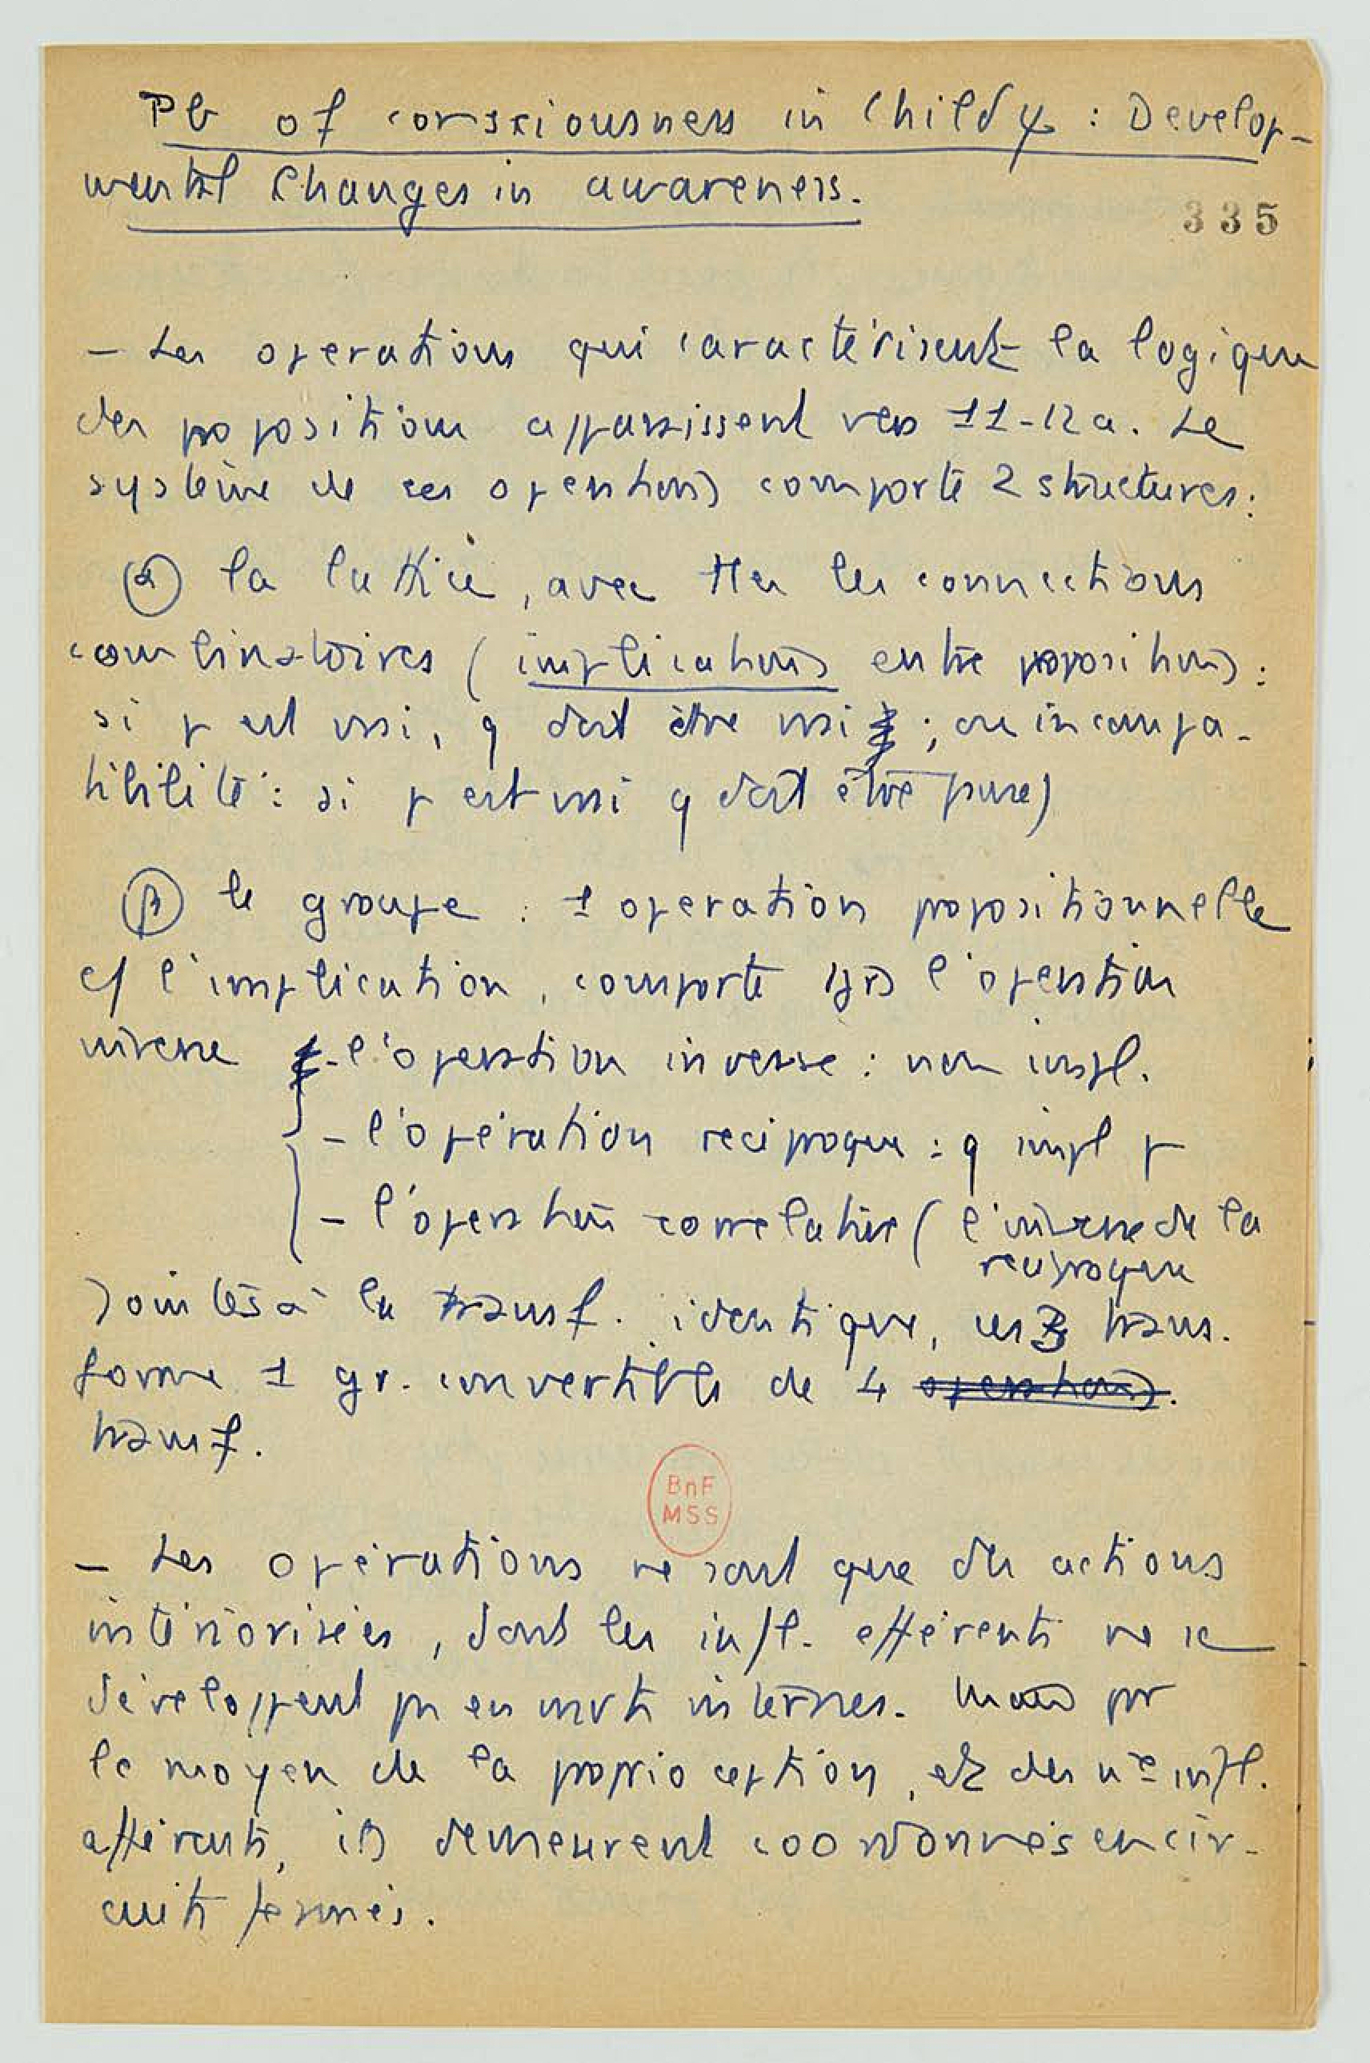 Pb of consciousness in Childy : Develop-
mental Changes in awareness.
335
– Les operations qui caractérisent la logique
des propositions apparaissent vers 11-12 a. Le
système de ces operations comporte 2 structures:
(α) la lattice, avec ttes les connections
combinatoires (implications entre propositions :
si p est vrai, q doit être vrai ; ou incompa-
tibilité : si p est vrai q doit être fausse)
(β) le groupe : 1 operation propositionnelle
c/ l'implication, comporte tjrs l'operation
inverse - l'operation inverse : non impl.
- l'opération reciproque : q impl p
- l'operation correlative ( l'inverse de la
reciproque
Jointes à la transf. identique, ces 3 trans.
forme 1 gr. convertible de 4 operations.
transf.
BnF
MSS
– Les opérations ne sont que des actions
intériorisées, dont les infl. efférents ne se
développent pas en mvts internes. Mais par
le moyen de la proprioception, et des infl.
afférents, ils demeurent coordonnés en cir-
cuits fermés.